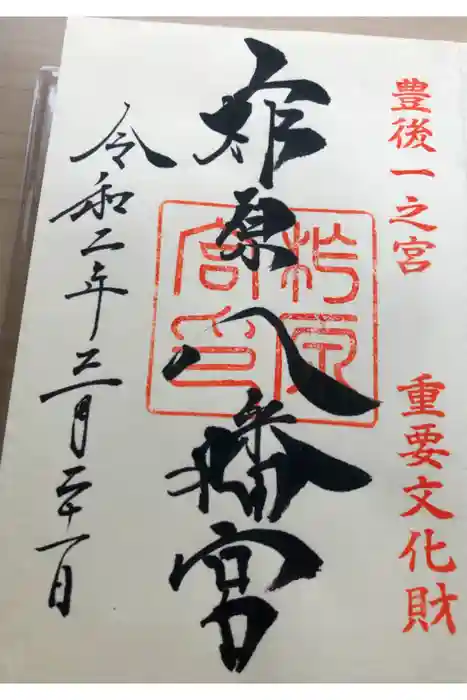 豊後一之宮
重要文化財
柞原八幡宮
柞原
宮印
令和二年三月二十一日